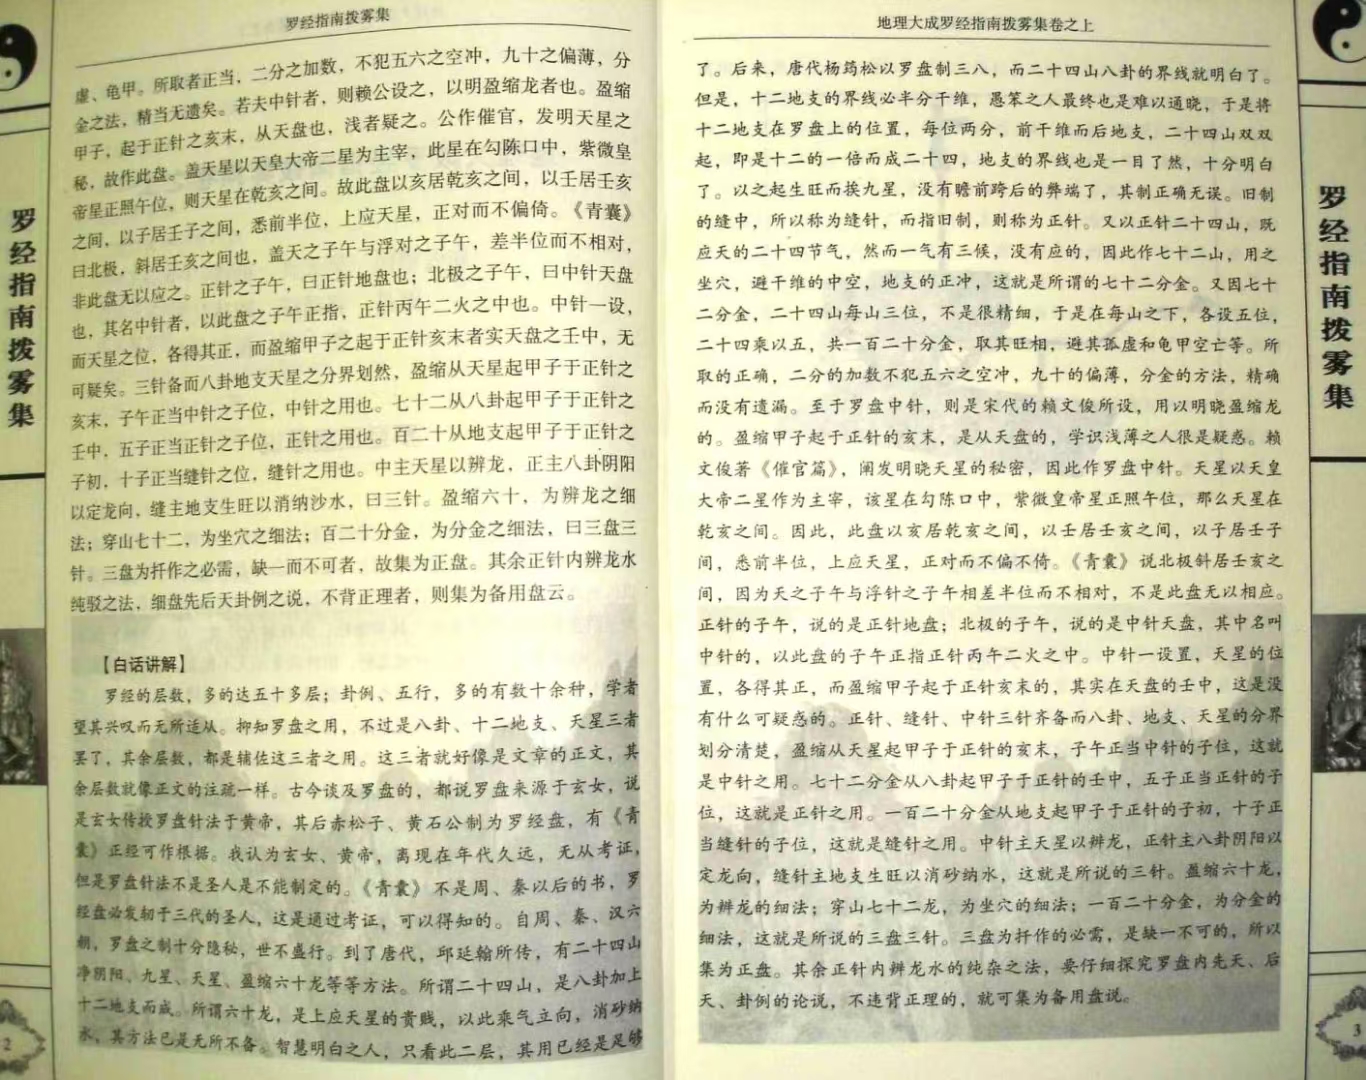 罗经指南拨雾集
虚、龟甲。所取者正当，二分之加数，不犯五六之空冲，九十之偏薄，分
金之法，精当无遗矣。若夫中针者，则赖公设之，以明盈缩龙者也。盈缩
甲子，起于正针之亥末，从天盘也，浅者疑之。公作催官，发明天星之
秘，故作此盘。盖天星以天皇大帝二星为主宰，此星在勾陈口中，紫微皇
帝星正照午位，则天星在乾亥之间。故此盘以亥居乾亥之间，以壬居壬亥
之间，以子居壬子之间，悉前半位，上应天星，正对而不偏倚。《青囊》
曰北极，斜居壬亥之间也，盖天之子午与浮对之子午，差半位而不相对，
非此盘无以应之。正针之子午，曰正针地盘也；北极之子午，曰中针天盘
也，其名中针者，以此盘之子午正指，正针丙午二火之中也。中针一设，
而天星之位，各得其正，而盈缩甲子之起于正针亥末者实天盘之壬中，无
可疑矣。三针备而八卦地支天星之分界划然，盈缩从天星起甲子于正针之
亥末，子午正当中针之子位，中针之用也。七十二从八卦起甲子于正针之
壬中，五子正当正针之子位，正针之用也。百二十从地支起甲子于正针之
子初，十子正当缝针之位，缝针之用也。中主天星以辨龙，正主八卦阴阳
以定龙向，缝主地支生旺以消纳沙水，曰三针。盈缩六十，为辨龙之细
法；穿山七十二，为坐穴之细法；百二十分金，为分金之细法，曰三盘三
针。三盘为扦作之必需，缺一而不可者，故集为正盘。其余正针内辨龙水
纯驳之法，细盘先后天卦例之说，不背正理者，则集为备用盘云。
【白话讲解】
罗经的层数，多的达五十多层；卦例、五行，多的有数十余种，学者
望其兴叹而无所适从。抑知罗盘之用，不过是八卦、十二地支、天星三者
罢了，其余层数，都是辅佐这三者之用。这三者就好像是文章的正文，其
余层数就像正文的注疏一样。古今谈及罗盘的，都说罗盘来源于玄女，说
是玄女传授罗盘针法于黄帝，其后赤松子、黄石公制为罗经盘，有《青
囊》正经可作根据。我认为玄女、黄帝，离现在年代久远，无从考证，
但是罗盘针法不是圣人是不能制定的。《青囊》不是周、秦以后的书，罗
经盘必发轫于三代的圣人，这是通过考证，可以得知的。自周、秦、汉六
朝，罗盘之制十分隐秘，世不盛行。到了唐代，邱延翰所传，有二十四山
净阴阳、九星、天星、盈缩六十龙等等方法。所谓二十四山，是八卦加上
十二地支而成。所谓六十龙，是上应天星的贵贱，以此乘气立向，消砂纳
水，其方法已是无所不备。智慧明白之人，只看此二层，其用已经是足够
罗经指南拨雾集
2
地理大成罗经指南拨雾集卷之上
了。后来，唐代杨筠松以罗盘制三八，而二十四山八卦的界线就明白了。
但是，十二地支的界线必半分干维，愚笨之人最终也是难以通晓，于是将
十二地支在罗盘上的位置，每位两分，前干维而后地支，二十四山双双
起，即是十二的一倍而成二十四，地支的界线也是一目了然，十分明白
了。以之起生旺而挨九星，没有瞻前跨后的弊端了，其制正确无误。旧制
的缝中，所以称为缝针，而指旧制，则称为正针。又以正针二十四山，既
应天的二十四节气，然而一气有三候，没有应的，因此作七十二山，用之
坐穴，避干维的中空，地支的正冲，这就是所谓的七十二分金。又因七十
二分金，二十四山每山三位，不是很精细，于是在每山之下，各设五位，
二十四乘以五，共一百二十分金，取其旺相，避其孤虚和龟甲空亡等。所
取的正确，二分的加数不犯五六之空冲，九十的偏薄，分金的方法，精确
而没有遗漏。至于罗盘中针，则是宋代的赖文俊所设，用以明晓盈缩龙
的。盈缩甲子起于正针的亥末，是从天盘的，学识浅薄之人很是疑惑。赖
文俊著《催官篇》，阐发明晓天星的秘密，因此作罗盘中针。天星以天皇
大帝二星作为主宰，该星在勾陈口中，紫微皇帝星正照午位，那么天星在
乾亥之间。因此，此盘以亥居乾亥之间，以壬居壬亥之间，以子居壬子
间，悉前半位，上应天星，正对而不偏不倚。《青囊》说北极斜居壬亥之
间，因为天之子午与浮针之子午相差半位而不相对，不是此盘无以相应。
正针的子午，说的是正针地盘；北极的子午，说的是中针天盘，其中名叫
中针的，以此盘的子午正指正针丙午二火之中。中针一设置，天星的位
置，各得其正，而盈缩甲子起于正针亥末的，其实在天盘的壬中，这是没
有什么可疑惑的。正针、缝针、中针三针齐备而八卦、地支、天星的分界
划分清楚，盈缩从天星起甲子于正针的亥末，子午正当中针的子位，这就
是中针之用。七十二分金从八卦起甲子于正针的壬中，五子正当正针的子
位，这就是正针之用。一百二十分金从地支起甲子于正针的子初，十子正
当缝针的子位，这就是缝针之用。中针主天星以辨龙，正针主八卦阴阳以
定龙向，缝针主地支生旺以消砂纳水，这就是所说的三针。盈缩六十龙，
为辨龙的细法；穿山七十二龙，为坐穴的细法；一百二十分金，为分金的
细法，这就是所说的三盘三针。三盘为扦作的必需，是缺一不可的，所以
集为正盘。其余正针内辨龙水的纯杂之法，要仔细探究罗盘内先天、后
天、卦例的论说，不违背正理的，就可集为备用盘说。
罗经指南拨雾集
3